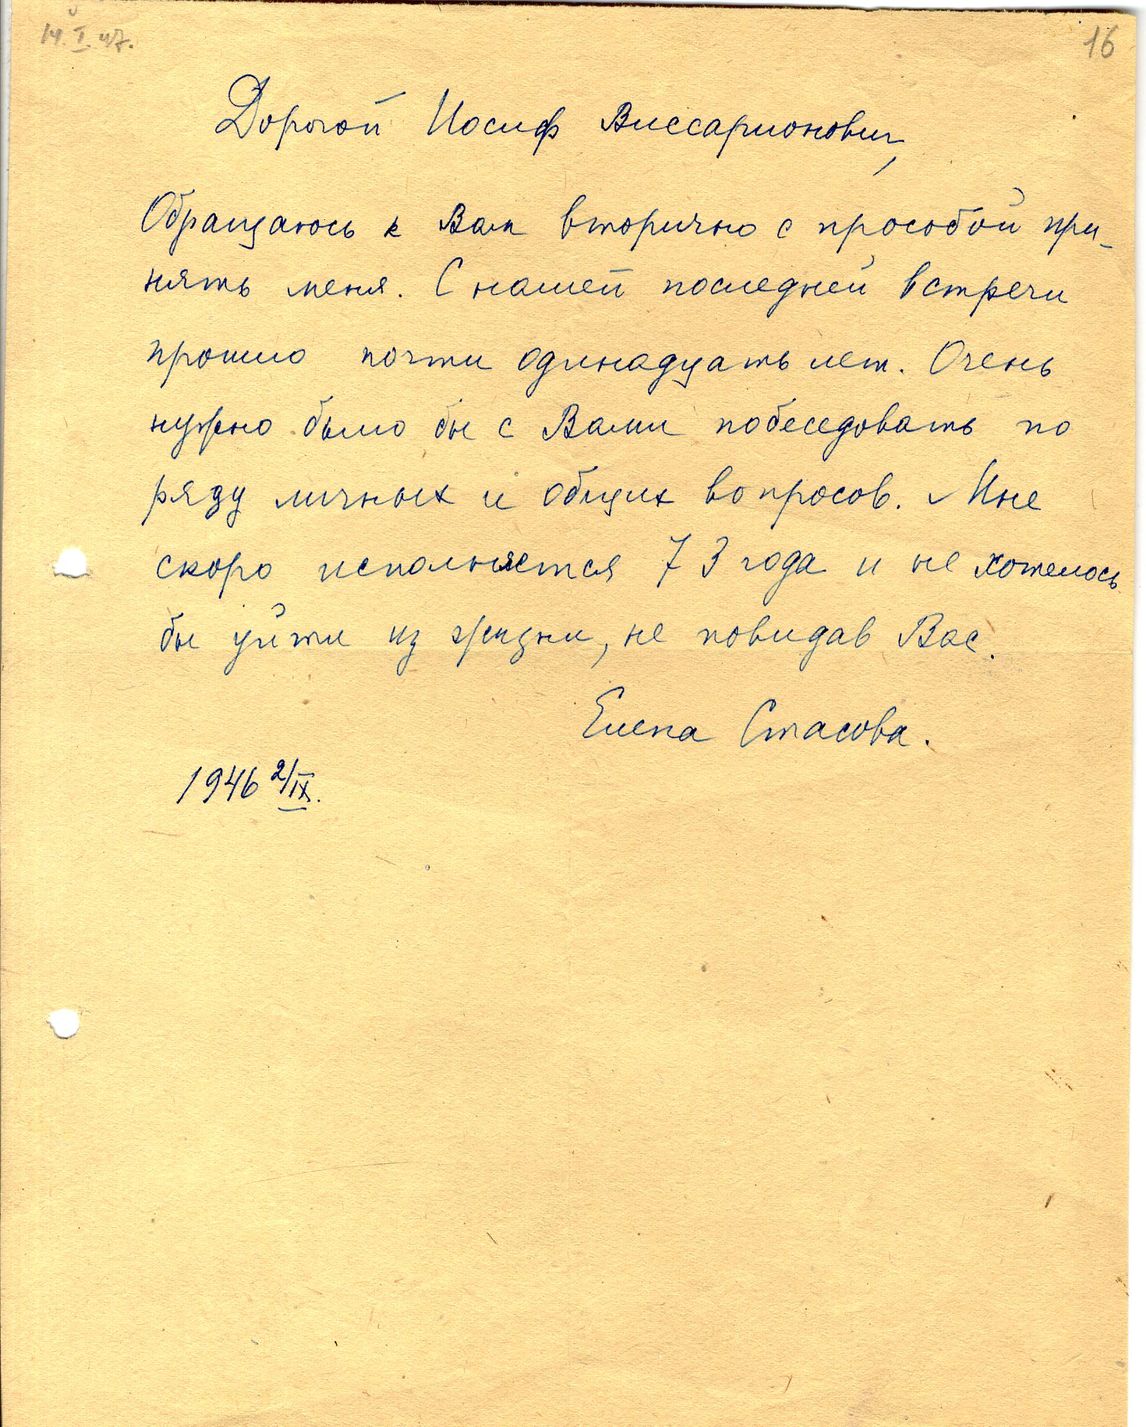 14.I.47.
16
Дорогой Иосиф Виссарионович,
Обращаюсь к Вам вторично с прособой при-
нять меня. С нашей последней встречи
прошло почти одинадцать лет. Очень
нужно было бы с Вами побеседовать по
ряду личных и общих вопросов. Мне
скоро исполняется 73 года и не хотелось
бы уйти из жизни, не повидав Вас.
Елена Стасова.
1946 2/IX.